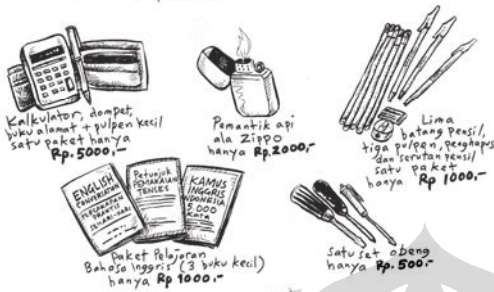 Kalkulator, dompet,
buku alamat + pulpen kecil
satu paket hanya
Rp. 5000,-
Pemantik api
ala Zippo
hanya Rp. 2000,-
Lima
batang pensil,
tiga pulpen, penghapus
dan serutan pensil
satu paket
hanya Rp 1000,-
ENGLISH
CONVERSATION
PERCAKAPAN
PRAKTIS
SEHARI-HARI
Petunjuk
PEMAKAIAN
TENSES
KAMUS
INGGRIS
INDONESIA
5.000
Kata
Paket Pelajaran
Bahasa Inggris (3 buku kecil)
hanya Rp 1000,-
Satu set obeng
hanya Rp. 500.-